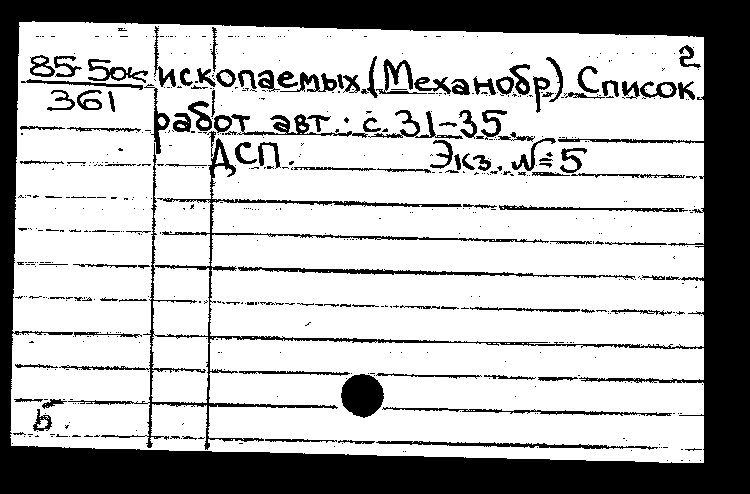 2
85-5ок ископаемых (Механобр) Список
361
работ авт.: с. 31-35.
ДСП. Экз. №5
б